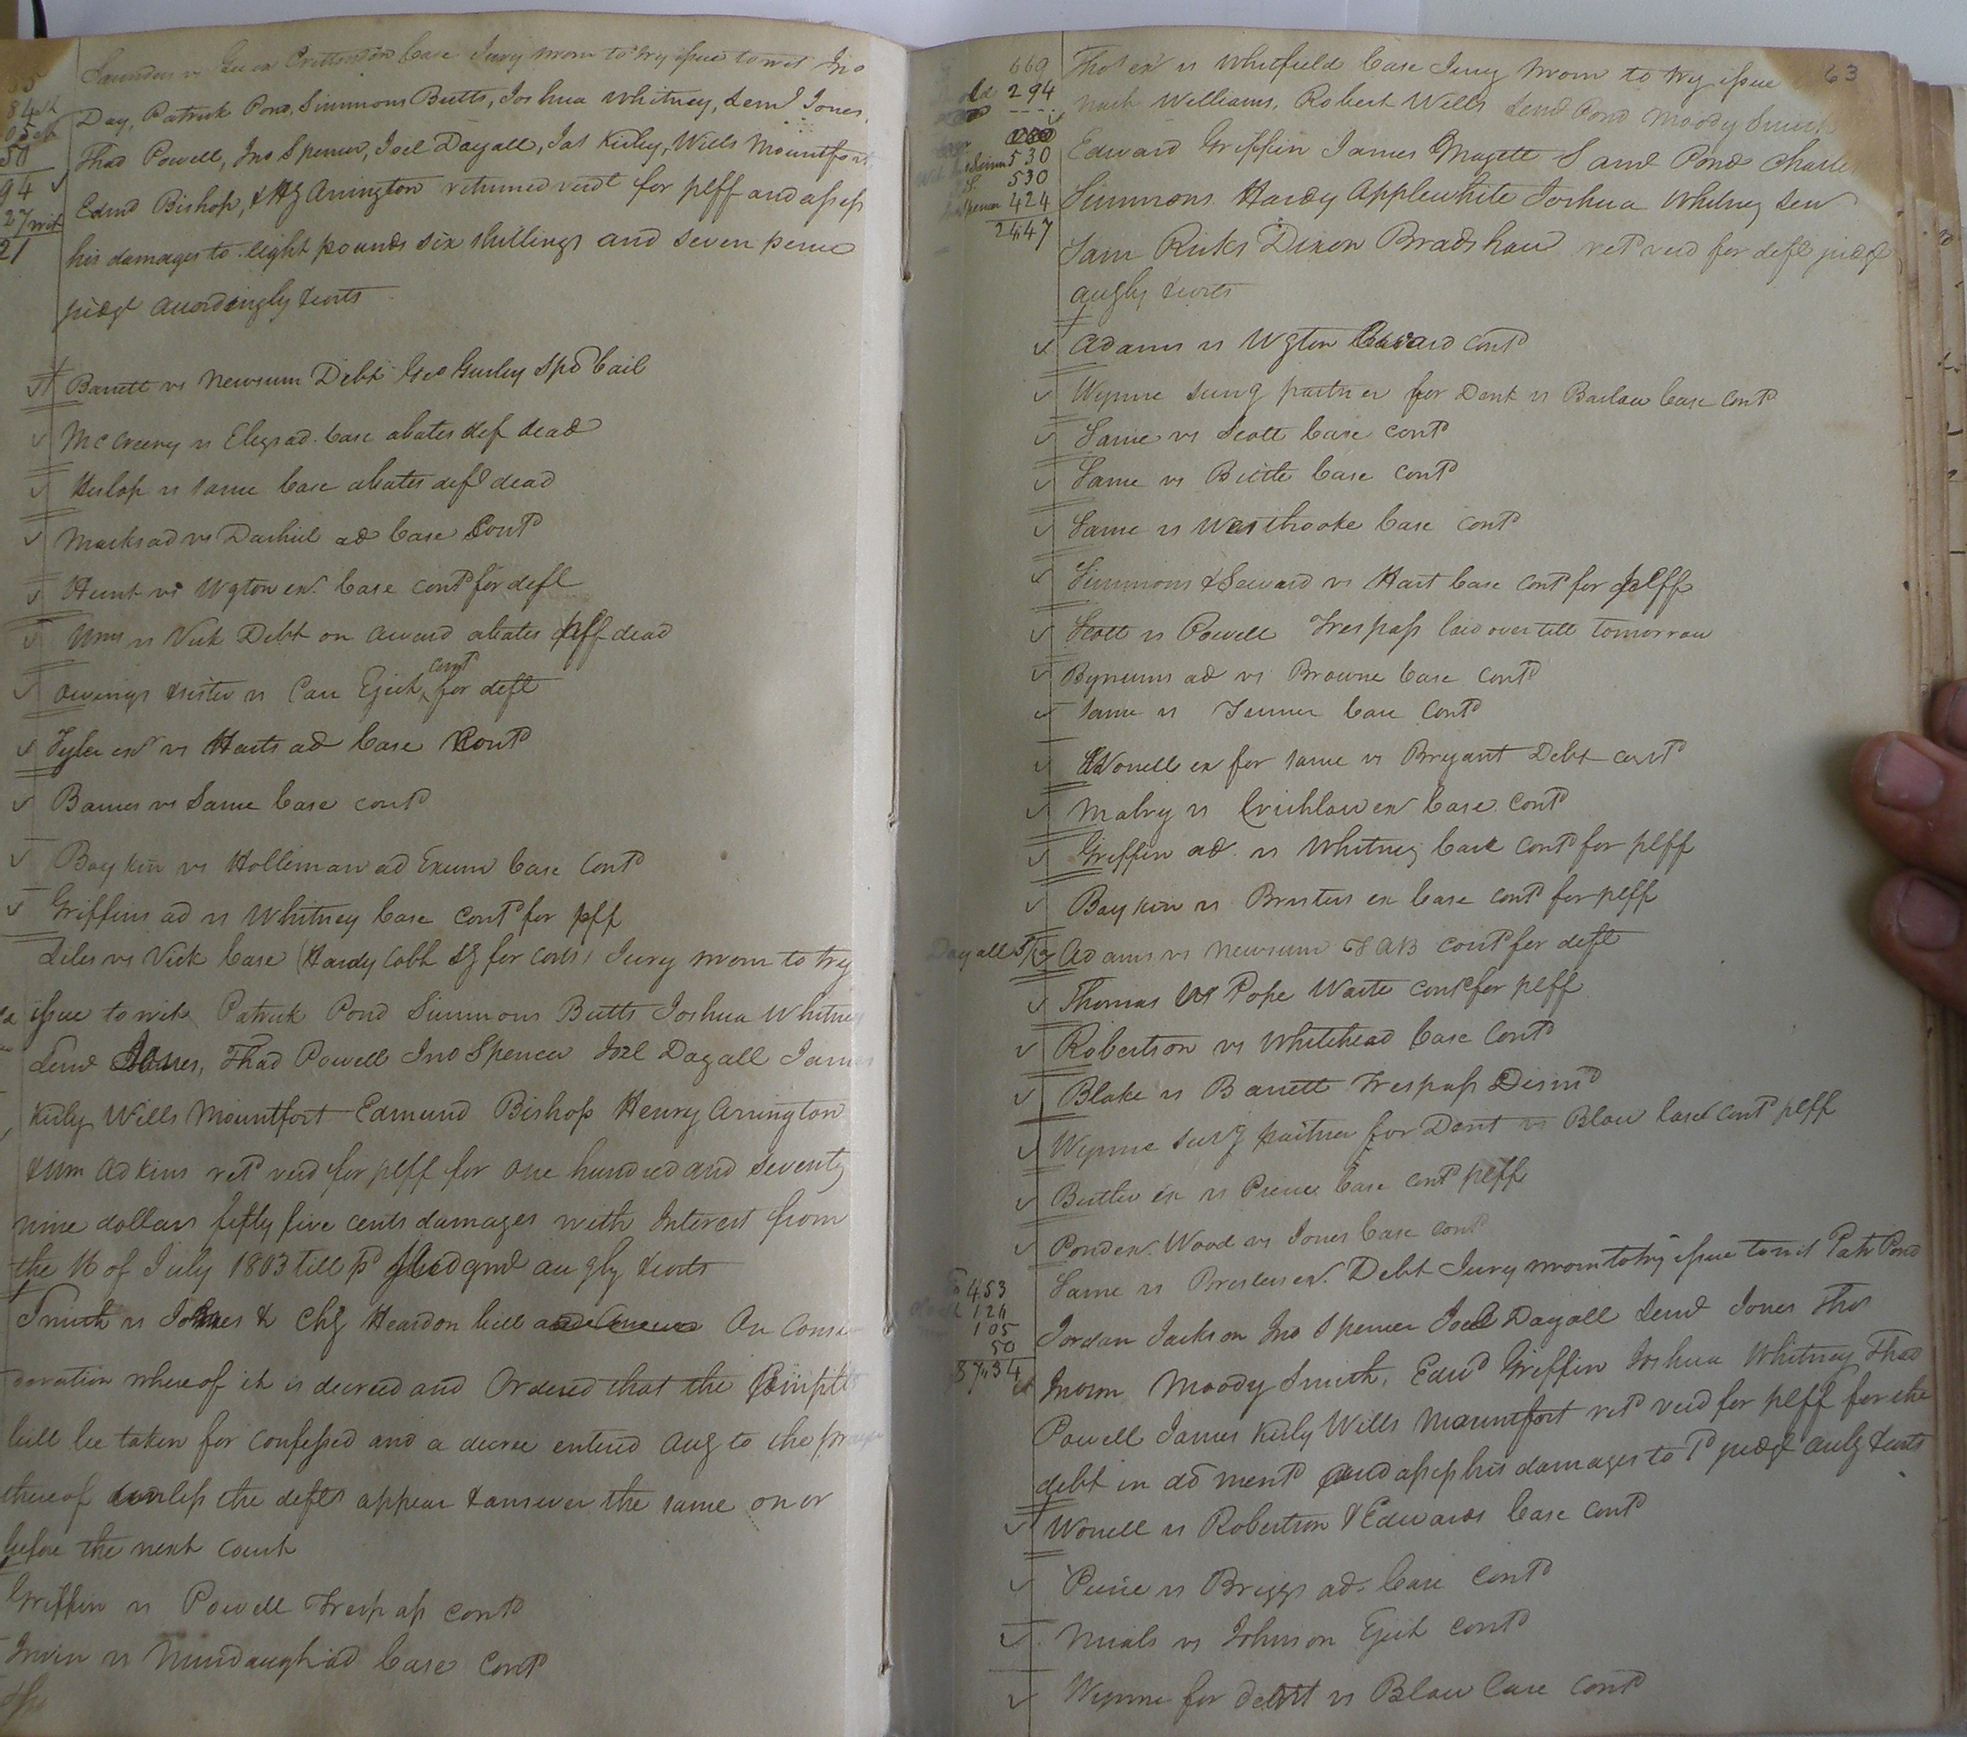 Saunders vs Gee ex Crittendon Case Jury sworn to try issue to wit Jno
Day, Patrick Pond, Simmons Butts, Joshua Whitney, Lemd Jones,
Thad Powell, Jno Spencer, Joel Dagall, Jas Kirby, Wills Mountfort
Edmd Bishop, & Hy Arrington returned verdt for plff and assess
his damages to eight pounds six shillings and seven pence
judgt accordingly & costs
84
50
94
27 wit
21
Barrett vs Newsum Debt Geo Gurley spd bail
McCreery vs Elegs ad. Case abates def dead
Heslop vs same Case abates deft dead
Marks ad vs Dashiel ad Case Contd
Hunt vs Wgton exr. Case contd for deft
Urms vs Vick Debt on award abates plff dead
contd
Owings & sister vs Carr Eject for deft
Tyler exr vs Harts ad Case Contd
Barnes vs Same Case contd
Boykin vs Holleman ad Exum Case Contd
Griffin ad vs Whitney Case Contd for plff
Liles vs Vick Case (Hardy Cobb sy for costs) Jury sworn to try
issue to wit Patrick Pond Simmons Butts Joshua Whitney
Lemd Jones, Thad Powell Jno Spencer Joel Dagall James
Kirby Wills Mountfort Edmund Bishop Henry Arrington
& Wm Adkins retd verd for plff for one hundred and seventy
nine dollars fifty five cents damages with Interest from
the 16 of July 1803 till pd Judgmt augly & costs
Smith vs Jones & Chy Heardon bill and Answer On Consi
deration whereof it is decreed and Ordered that the Complts
bill be taken for confessed and a decree entered aug to the prayer
thereof unless the defts appear & answer the same on or
before the next court
Griffin vs Powell Trespass contd
Irwin vs Murdaugh ad Case Contd
63
669
294
530
530
424
2447
Thos exr vs Whitfield Case Jury sworn to try issue
Nath Williams, Robert Wells Lemd Pond Moody Smith
Edward Griffin James Magett Saml Pond Charles
Simmons Hardy Applewhite Joshua Whitney Senr
Sam Ricks Dixon Bradshaw retd verd for deft judgt
augly & costs
Adams vs Wgton Case contd
Wynne survg partner for Dent vs Barlow Case Contd
Same vs Scott Case contd
Same vs Bittle Case contd
Same vs Westbrooke Case contd
Simmons & Seward vs Hart Case Contd for plff
Scott vs Powell Trespass laid over till tomorrow
Bynums ad vs Browne Case Contd
Same vs Turner Case Contd
Worrell ex for same vs Bryant Debt contd
Mabry vs Crichlow exr Case Contd
Griffin ad. vs Whitney Case Contd for plff
Boykin vs Bruster ex Case contd for plff
Dagall Adams vs Newsum T A B contd for deft
Thomas vs Pope Waste contd for plff
Robertson vs Whitehead Case Contd
Blake vs Barrett Trespass Dismd
Wynne survg partner for Dent vs Blow Case Contd plff
Butler ex vs Pierce Case Contd plff
Pond exr. Wood vs Jones Case contd
Same vs Bruster exr. Debt Jury sworn to try issue to wit Patr Pond
453
124
105
50
Jordan Jackson Jno Spencer Joel Dagall Lemd Jones Thos
Inman Moody Smith, Edwd Griffin Joshua Whitney Thad
Powell James Kirby Wills Mountfort retd verd for plff for the
debt in de mentd and assess his damages to 1d judgt augly & costs
Worrell vs Robertson & Edwards Case contd
Peirie vs Briggs ad. Case Contd
Mials vs Johnson Eject Contd
Wynne for dent vs Blow Case Contd